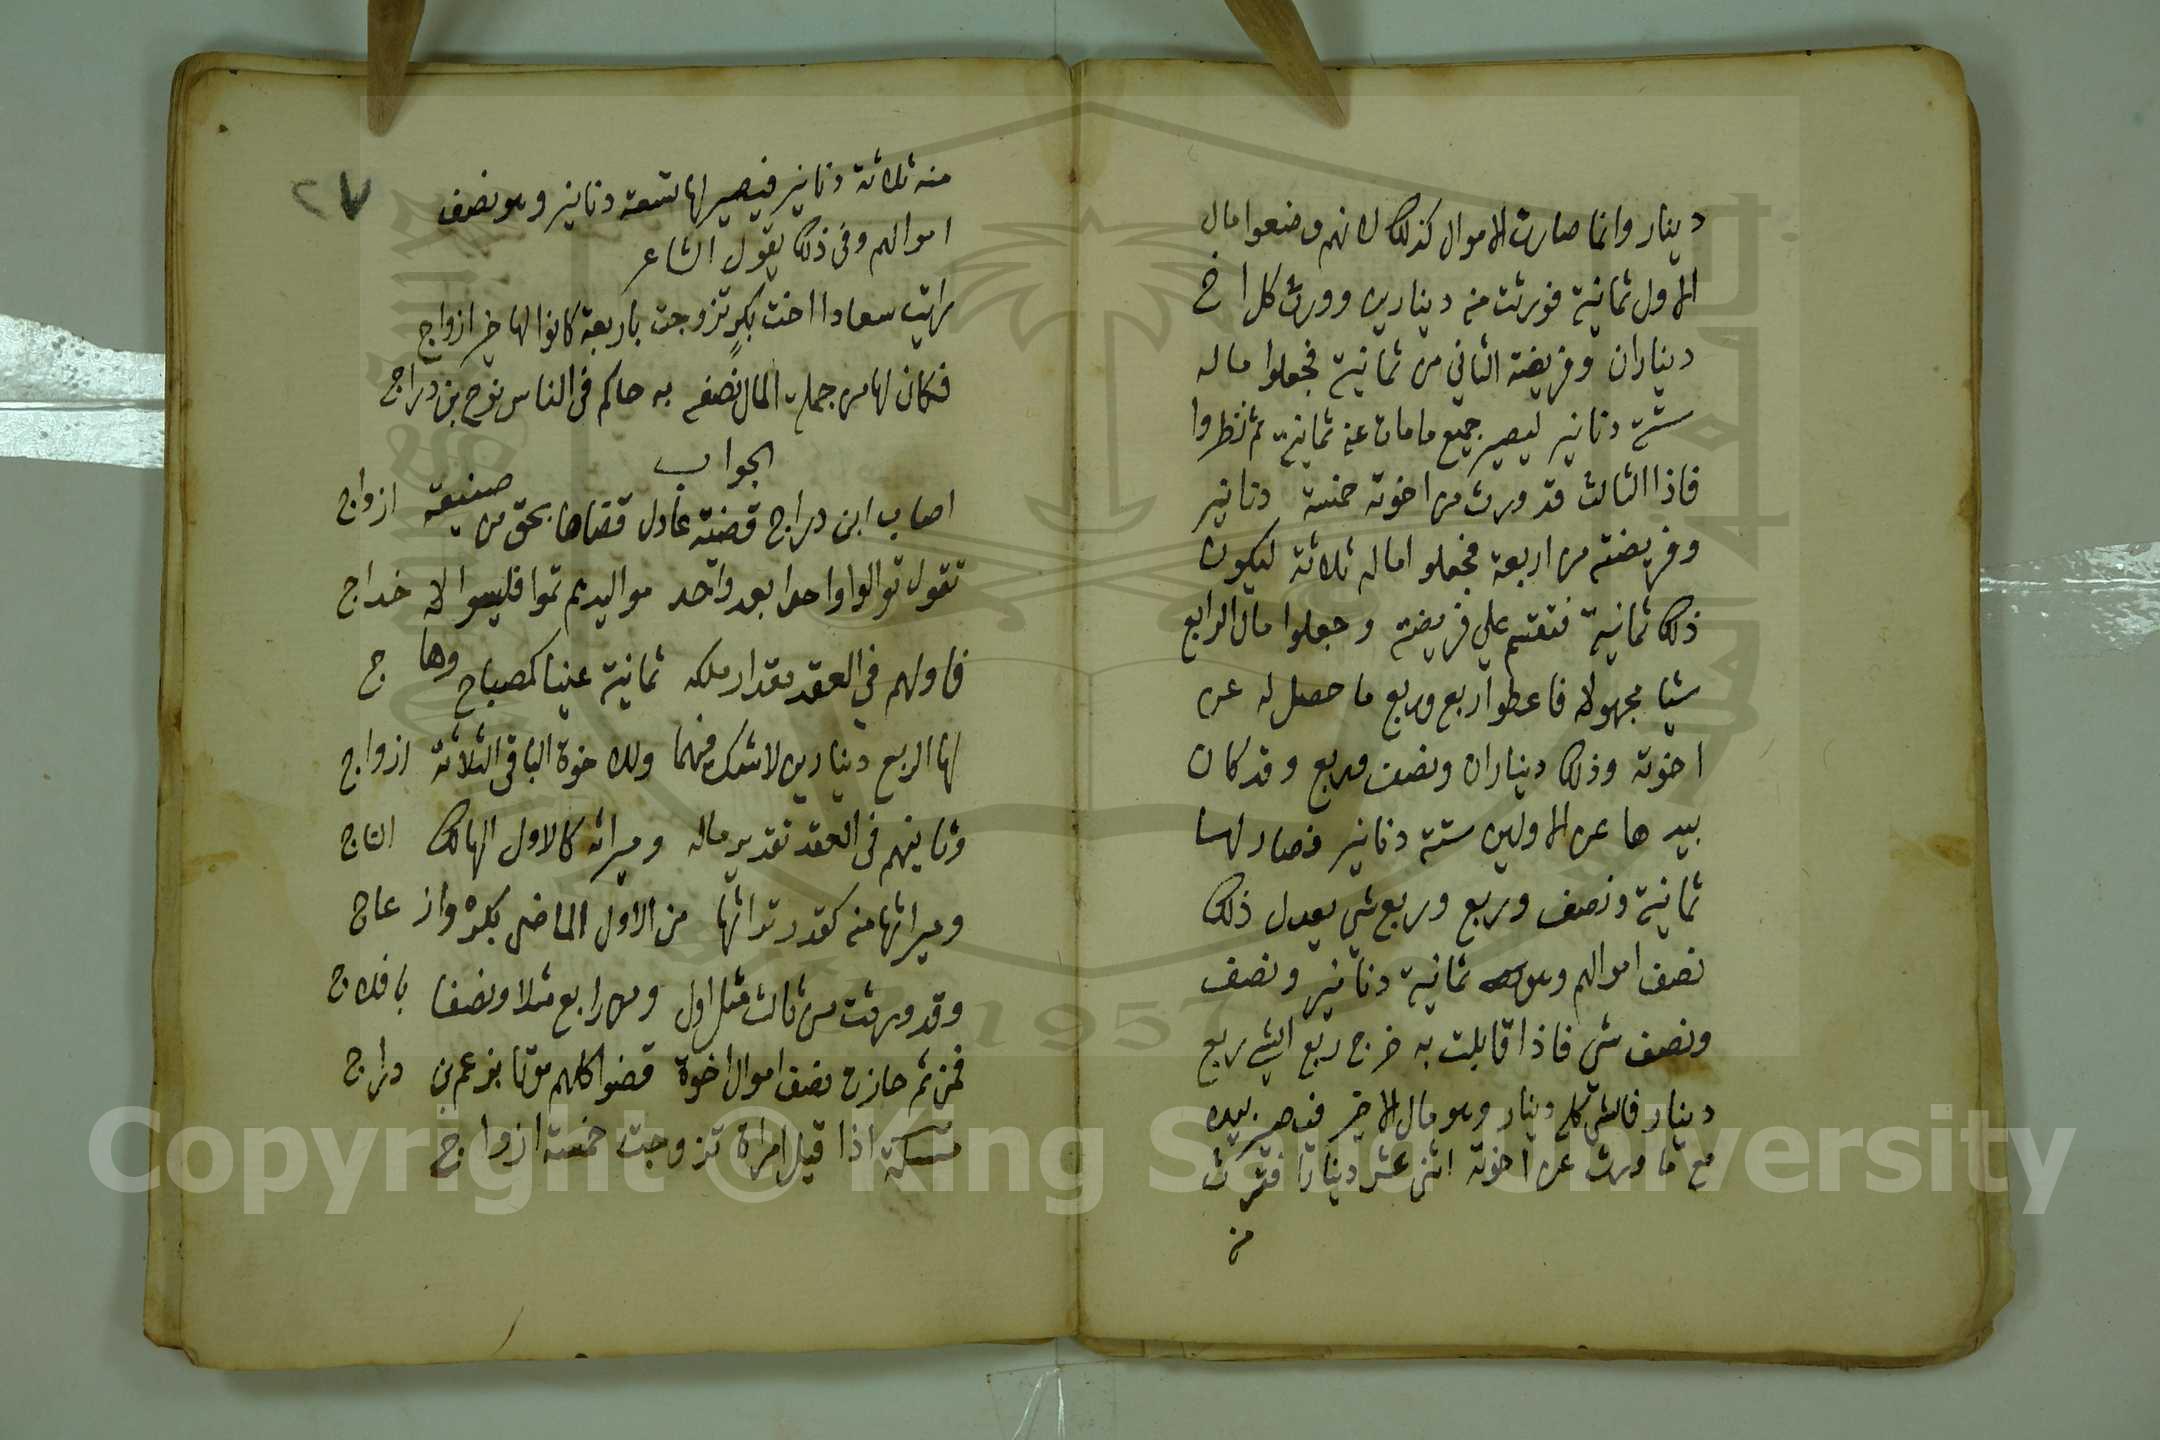 دينار وانما صارت الاموال كذلك لانهم وضعوا مال
الاول ثمانية فورثت منه دينارين وورث كل اخ
ديناران وفريضة الثاني من ثمانية فجعلوا ماله
ستة دنانير ليصير جميع مامات عنه ثمانية ثم نظروا
فاذا الثالث قد ورث من اخوته خمسة دنانير
وفريضته من اربعة فجعلو اماله ثلاثة ليكون
ذلك ثمانية فتقسم علي فريضته وجعلوا مال الرابع
شيا مجهولا فاعطوا ربع وربع ما حصل له عن
اخوته وذلك ديناران ونصف وربع وقد كان
بيدها عن الاولين ستة دنانير فصار لها
ثمانية ونصف وربع وربع شي يعدل ذلك
نصف اموالهم وهو ثمانية دنانير ونصف
ونصف شي فاذا قابلت به خرج ربع الشي ربع
دينار فالشي كله دينار وهو مال الاخير فيصير بيده
مع ما ورث عن اخوته اثنى عشر دينارا فترث
منه
٢٧
منه ثلاثة دنانير فيصير لها تسعة دنانير وهو نصف
اموالهم وفي ذلك يقول الشاعر
رايت سعادا اخت بكر تزوجت باربعة كانوا لها خير ازواج
فكان لها من جملة المال نصفه به حاكم في الناس نوح بن دراج
الجواب
اصاب ابن دراج قضية عادل قضاها بحق من صنيعة ازواج
تقول توالوا واحدا بعد واحد مواليدهم تموا فليسوا لا خداج
فاولهم في العقد مقدار ملكه ثمانية عينا كمصباح وهاج
لها الربع دينارين لا شك فيهما وللاخوة الباقي الثلاثة ازواج
وثانيهم في العقد تقدير ماله وميراثه كالاول الهالك الناج
وميراثها منه كقدر تراثها من الاول الماضي بكره واز عاج
وقد ورثت من ثالث مثل اول ومن رابع مثلا ونصفا بافلاج
فمن ثم حازت نصف اموال اخوة قضوا كلهم موتا بزعم بن دراج
مسئلة اذا قيل امراة تزوجت خمسة ازواج
Copyright © King Saud University
1957